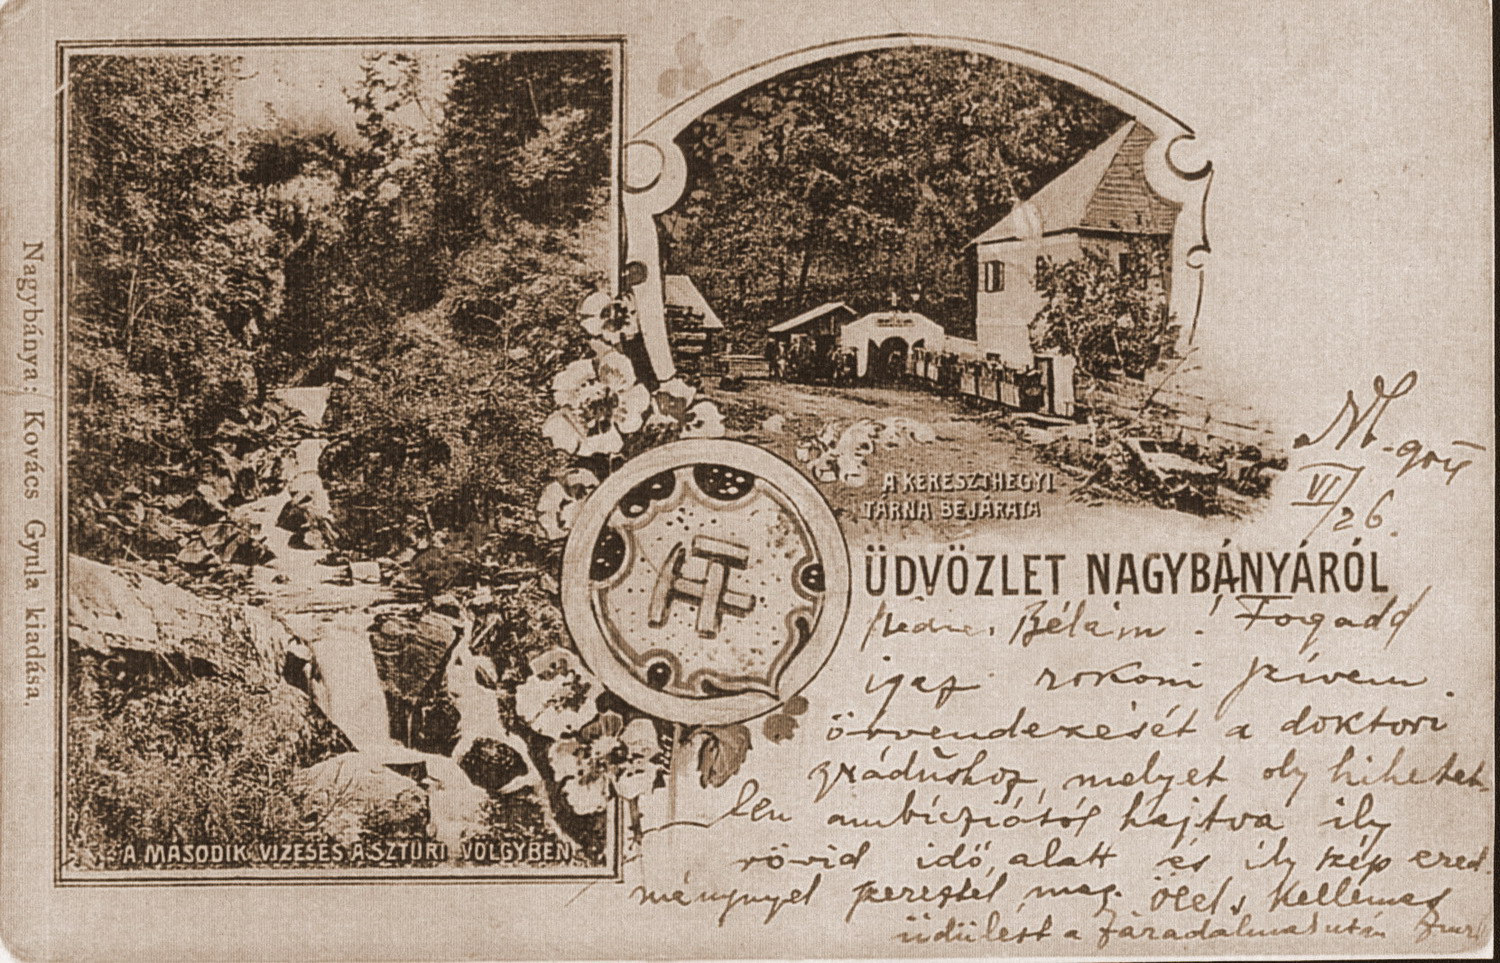 Nagybánya: Kovács Gyula kiadása.
A MÁSODIK VIZESÉS A SZTURI VÖLGYBEN
A KERESZTHEGYI
TÁRNA BEJÁRATA
VI/26.
ÜDVÖZLET NAGYBÁNYÁRÓL
Bélám! Fogadd
igaz rokoni szívem
örvendezését a doktori
grádushoz, melyet oly hihetet-
len ambícziótól hajtva ily
rövid idő alatt és ily szép ered-
ménynyel szereztél meg. Ölel s kellemes
üdülést a fáradalmas után